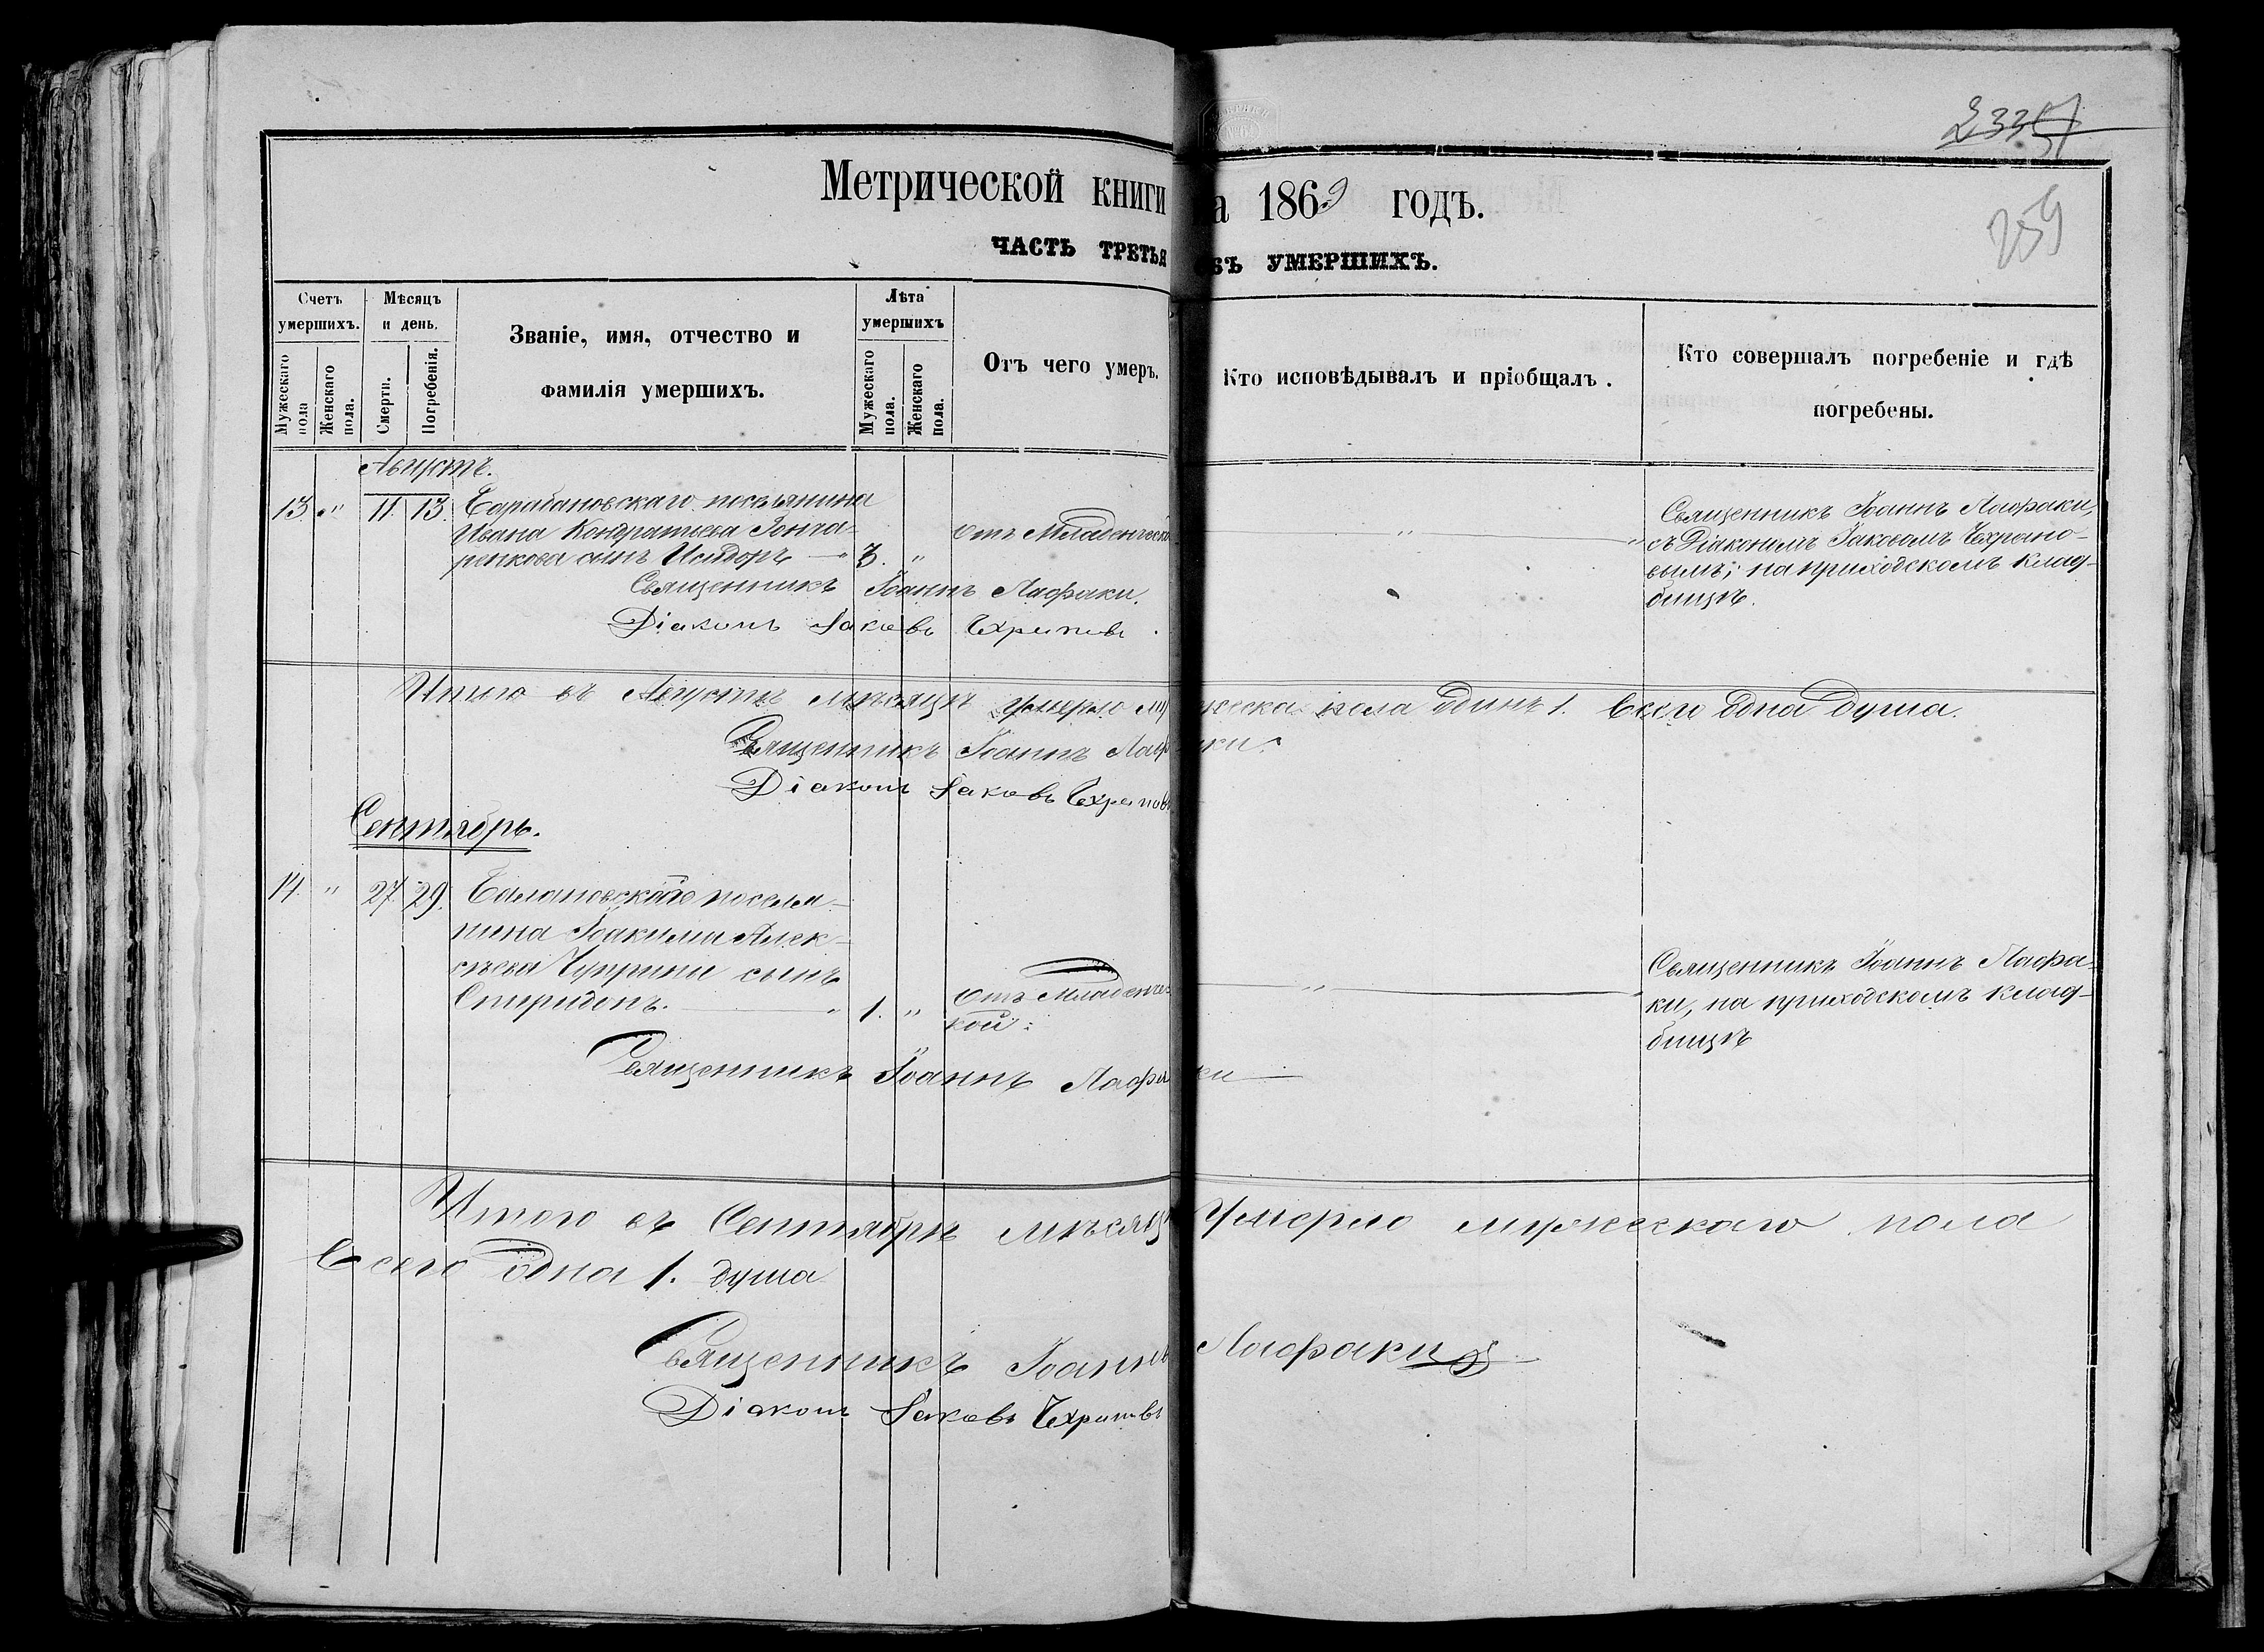 259
Метрической книги
а 1869 годъ.
ЧАСТЬ ТРЕТЬЯ
УМЕРШИХЪ.
Счетъ умершихъ.
Мужескаго пола
Женскаго пола.
Мѣсяцъ и день.
Смерти.
Погребенія.
Званіе, имя, отчество и
фамилія умершихъ.
Лѣта умершихъ
Мужескаго пола.
Женскаго пола.
Отъ чего умеръ.
Кто исповѣдывалъ и пріобщалъ.
Кто совершалъ погребеніе и гдѣ
погребены.
Августъ.
13. " 11. 13. поселянина
Ивана Кондратьева Гонча-
ренкова сынъ Исидоръ — " 3. "
Отъ Младенческо
"
Священникъ Іоаннъ Лафаки,
съ Діакономъ Іаковомъ
вымъ; на приходскомъ клад-
бищѣ.
Священникъ Іоаннъ Лафаки.
Діаконъ Іаковъ
Итого въ Августѣ мѣсяцѣ умерло му жеска пола одинъ 1. Всего одна душа.
Священникъ Іоаннъ Лафаки.
Діаконъ Іаковъ
Сентябрь.
14. " 27. 29. поселя-
нина Іоакима Алек-
сѣева Чуприни сынъ
Спиридонъ. — " 1. "
Отъ Младенчес-
кой.
"
Священникъ Іоаннъ Лафа-
ки, на приходскомъ клад-
бищѣ
Священникъ Іоаннъ Лафаки
Итого въ Сентябрѣ мѣсяц Умерло мужескаго пола
Всего одна 1. душа
Священникъ Іоаннъ Лафаки
Діаконъ Іаковъ